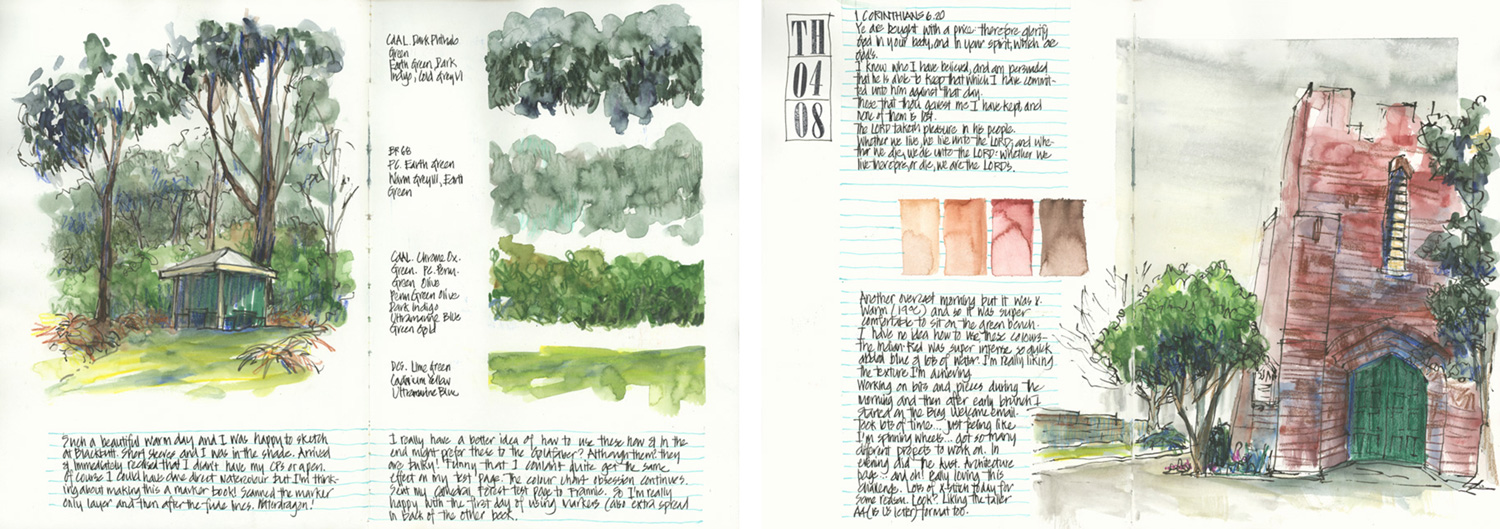 CdAL. Dark Phthalo
Green
Earth Green, Dark
Indigo, Cold Grey VI
BR 6B
P.C. Earth Green
Warm Grey III, Earth
Green
CdAL. Chrome Ox.
Green. P.C. Perm.
Green Olive
Perm Green Olive
Dark Indigo
Ultramarine Blue
Green Gold
DCS. Lime Green
Cadmium Yellow
Ultramarine Blue
Such a beautiful warm day and I was happy to sketch
at Blackbutt. Short sleeves and I was in the shade. Arrived
& immediately realised that I didn't have my CPs or a pen.
Of course I could have done direct watercolour but I'm think-
ing about making this a marker book! Scanned the marker
only layer and then after the fude lines.
I really have a better idea of how to use these now & in the
end might prefer these to the Goldfaber? Although them? they
are inky! Funny that I couldn't quite get the same
effect on my test page. The colour chart obsession continues.
Sent my Cathedral Forest test page to Frannie. So I'm really
happy with the first day of using markers (also extra spread
in back of the other book.
TH
04
08
1 CORINTHIANS 6.20
Ye are bought with a price: therefore glorify
God in your body, and in your spirit, which are
God's.
I know who I have believed, and am persuaded
that he is able to keep that which I have commit-
ted unto him against that day.
Those that thou gavest me I have kept, and
none of them is lost.
The LORD taketh pleasure in his people.
Whether we live, we live unto the LORD; and whe-
ther we die, we die unto the LORD: whether we
live therefore, or die, we are the LORD'S.
Another overcast morning but it was
warm (19°C) and so it was super
comfortable to sit on the green bench.
I have no idea how to use these colours-
the Indian Red was super intense so quick
added blue & lots of water. I'm really liking
the texture I'm achieving
Working on bits and pieces during the
morning and then after early brunch I
started on the Buoy Welcome email.
Took lots of time... just feeling like
I'm spinning wheels... got so many
different projects to work on. In
evening did the Aust. Architecture
page... and oh! really loving this
challenge. Lots of x-stitch today for
some reason. Look? Liking the taller
A4 (is US letter) format too.